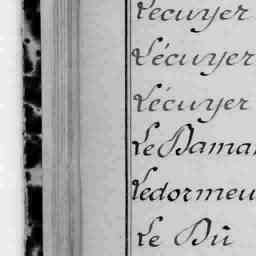 Lécuyer
Lécuyer
Lécuyer
Le Dama
Ledormeu
Le Dû